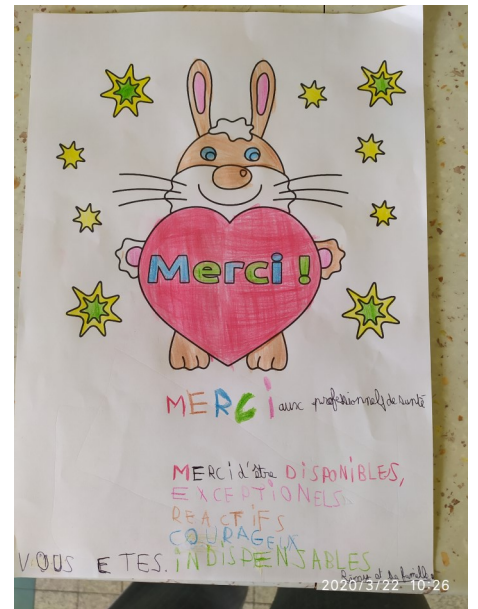 Merci !
MERCI aux professionnels de santé
MERCI d'être DISPONIBLES,
EXCEPTIONELS
REACTIFS
COURAGEUX
VOUS ETES INDISPENSABLES
et sa famille
2020/3/22 10:26